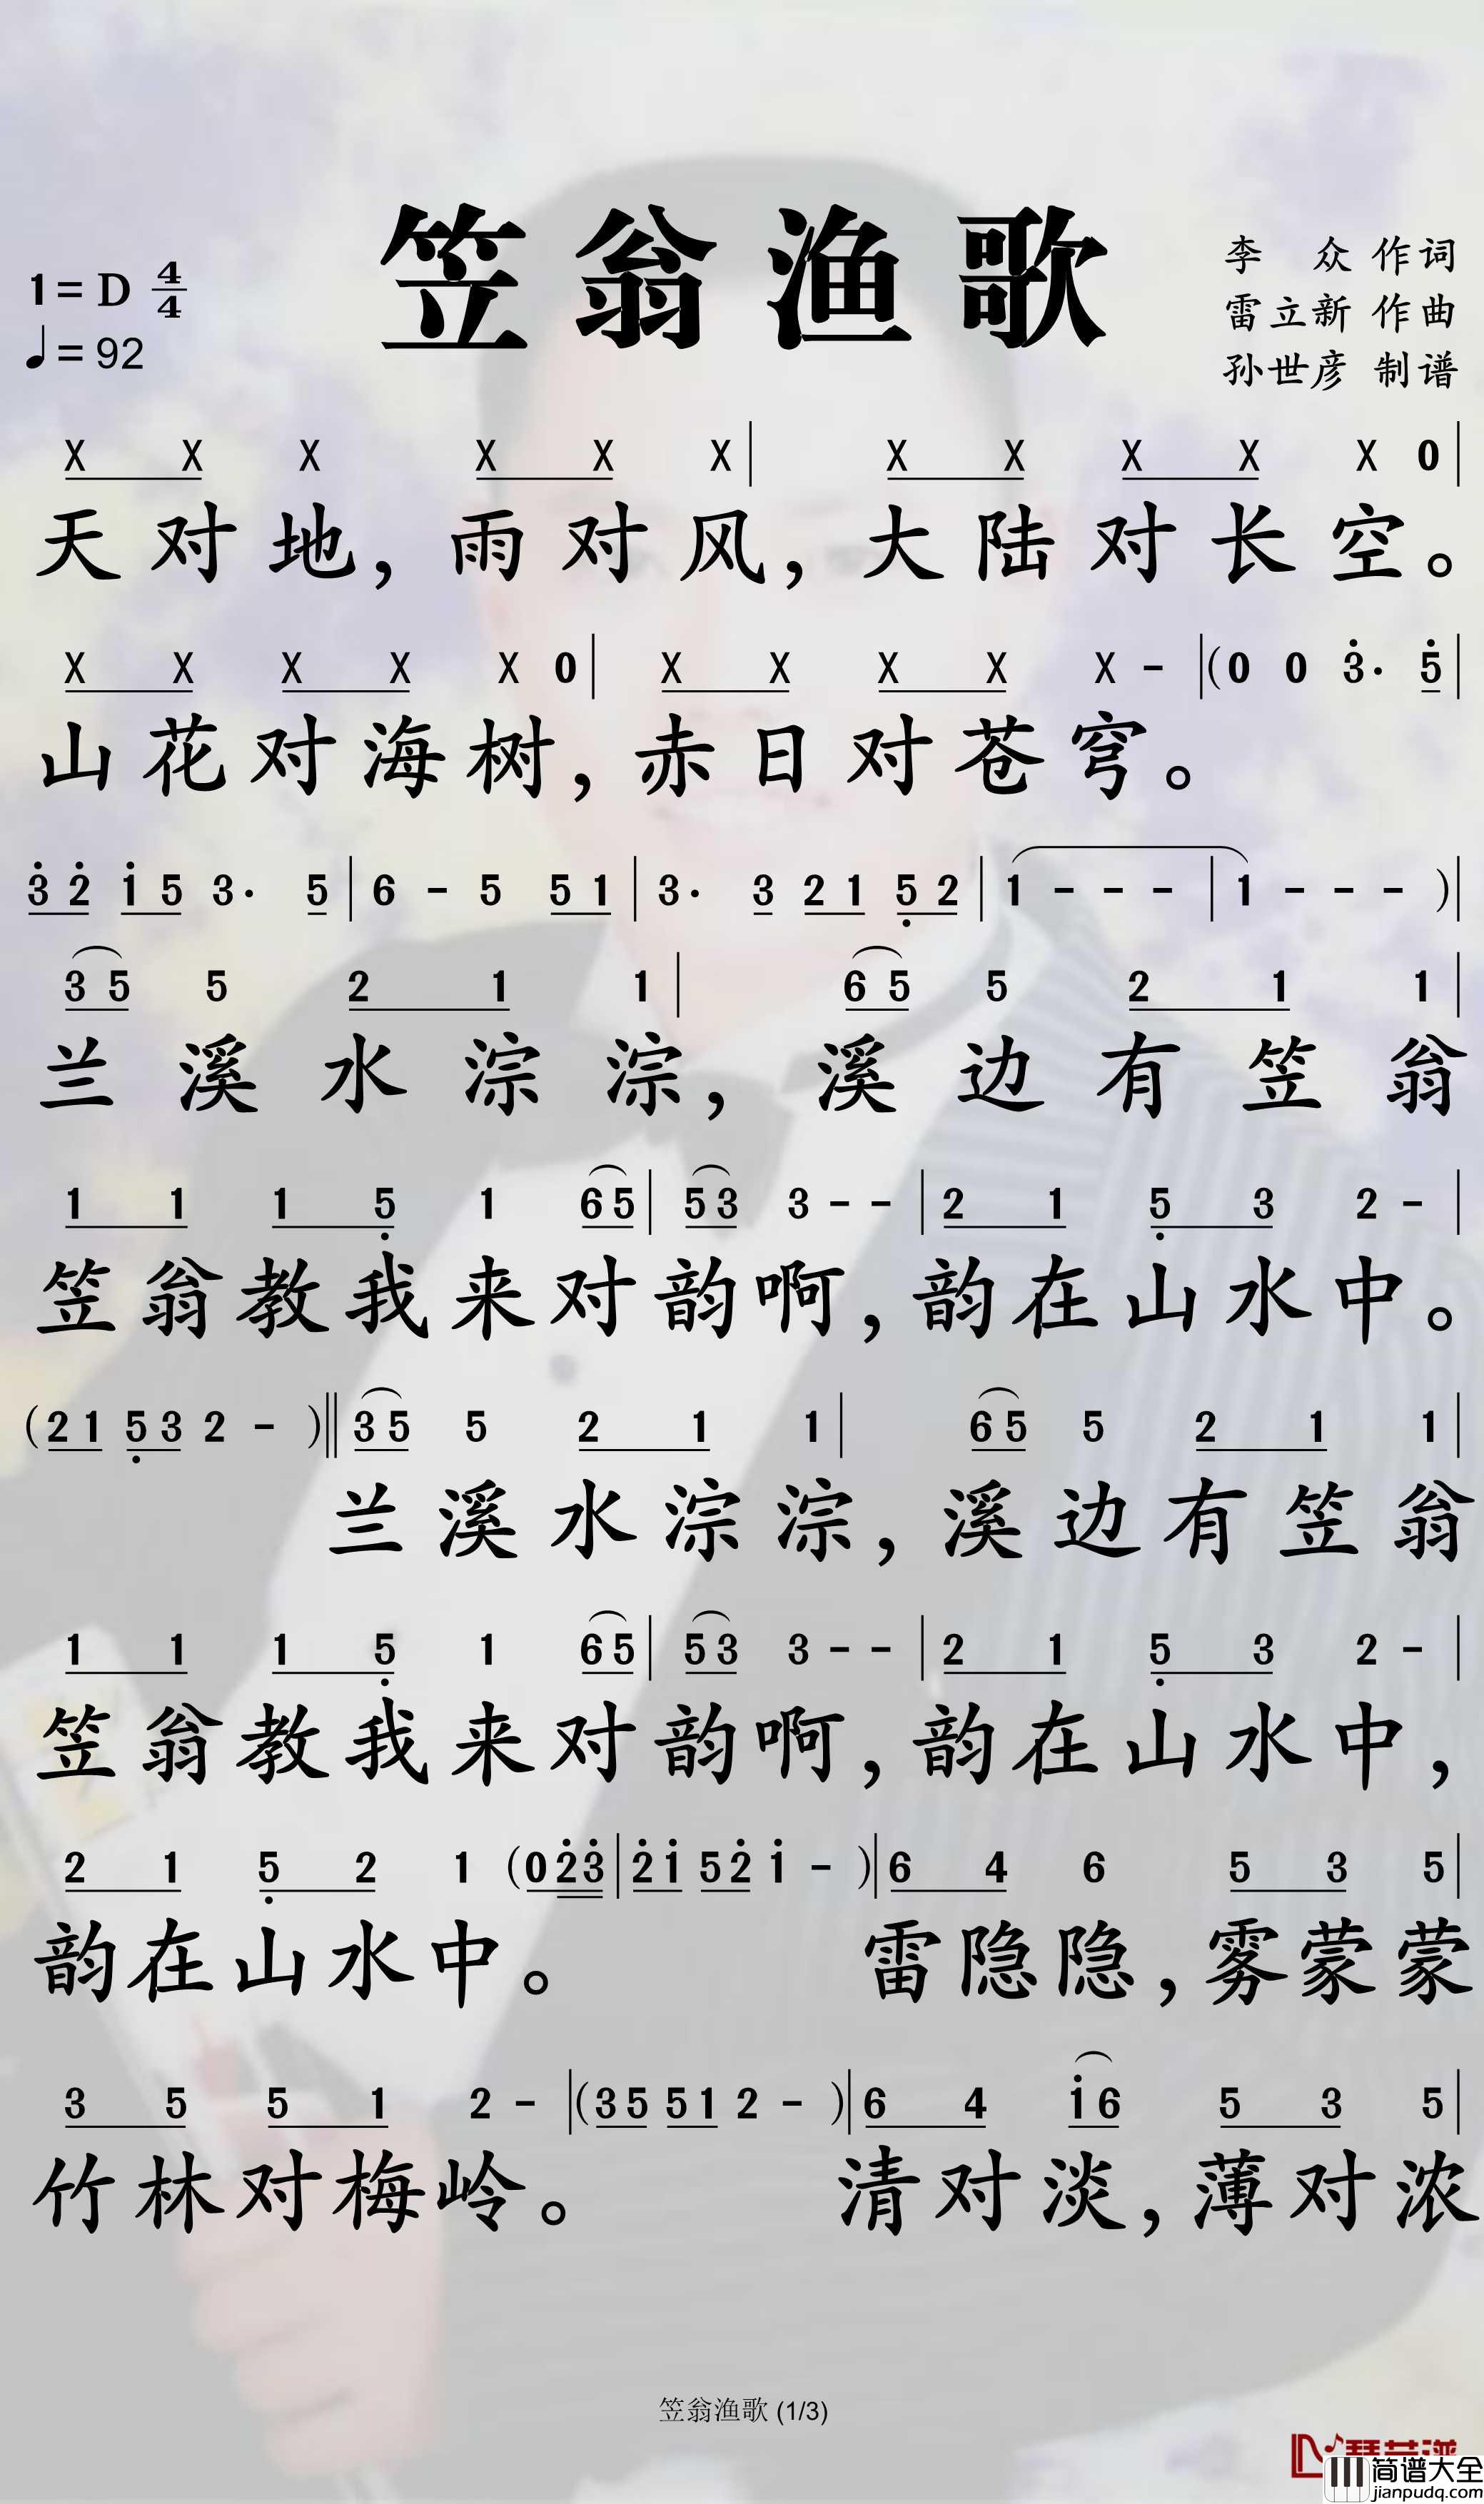 笠翁渔歌
1=D 4/4
♩=92
李 众 作词
雷立新 作曲
孙世彦 制谱
X X X X X X | X X X X X 0 |
天对地，雨对风，大陆对长空。
X X X X X 0 | X X X X X - | (0 0 3̇· 5̇ |
山花对海树，赤日对苍穹。
3̇ 2̇ 1̇ 5 3· 5 | 6 - 5 5 1 | 3· 3 2 1 5̣ 2 | 1 - - - | 1 - - - ) |
3 5 5 2 1 1 | 6 5 5 2 1 1 |
兰溪水淙淙，溪边有笠翁
1 1 1 5̣ 1 6 5 | 5 3 3 - - | 2 1 5̣ 3 2 - |
笠翁教我来对韵啊，韵在山水中。
(2 1 5̣ 3 2 - ) || 3 5 5 2 1 1 | 6 5 5 2 1 1 |
兰溪水淙淙，溪边有笠翁
1 1 1 5̣ 1 6 5 | 5 3 3 - - | 2 1 5̣ 3 2 - |
笠翁教我来对韵啊，韵在山水中，
2 1 5̣ 2 1 (0 2̇ 3̇ | 2̇ 1̇ 5 2̇ 1̇ - ) | 6 4 6 5 3 5 |
韵在山水中。 雷隐隐，雾蒙蒙
3 5 5 1 2 - | (3 5 5 1 2 - ) | 6 4 1̇ 6 5 3 5 |
竹林对梅岭。 清对淡，薄对浓
笠翁渔歌 (1/3)
简谱大全
jianpudq.com